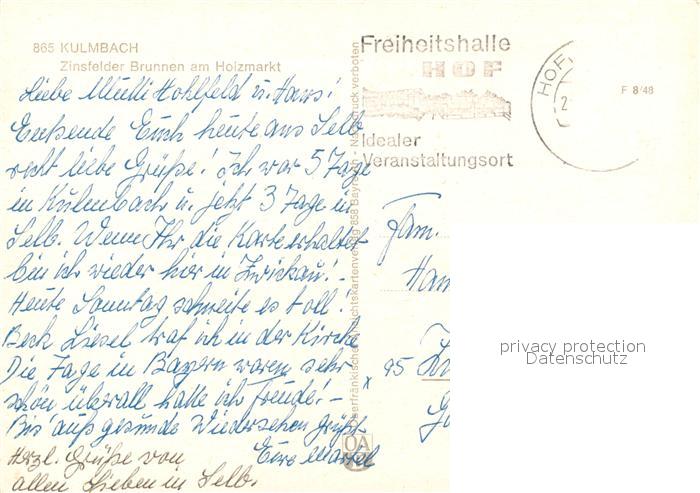 865 KULMBACH
Zinsfelder Brunnen am Holzmarkt
Liebe Mutti Hohlfeld u. Hans!
Euch heute aus Selb
recht liebe Grüße! Ich war 5 Tage
in Kulmbach u. jetzt 3 Tage in
Selb. Wenn Ihr die Karte erhaltet
bin ich wieder hier in Zwickau! -
Heute Sonntag schneite es toll!
Beck Liesel traf ich in der Kirche
Die Tage in Bayern waren sehr
schön überall hatte ich Freude! -
Bis auf gesunde Wiedersehen grüßt
Eure
Herzl. Grüße von
allen Lieben in Selb.
Freiheitshalle
HOF
Idealer
Veranstaltungsort
HOF
2
F 8/48
Oberfränkischer Ansichtskartenverlag 858 Bayreuth - Nachdruck verboten
OA
Fam.
Han
x 95
privacy protection
Datenschutz